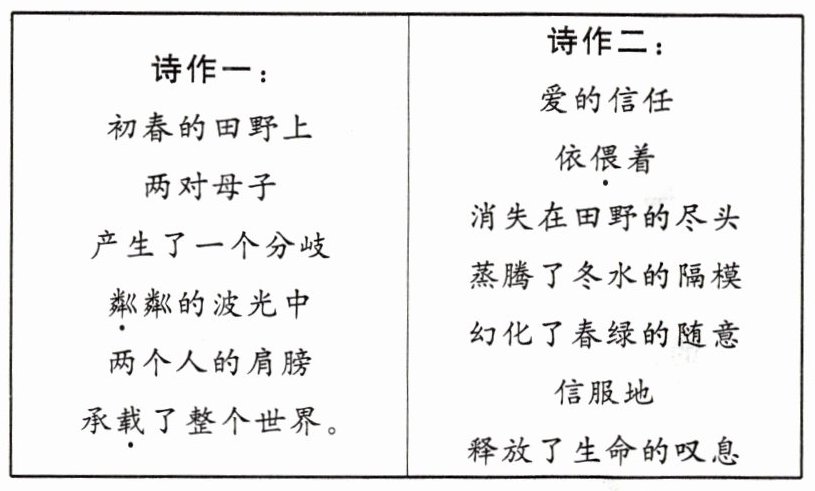 诗作一：
初春的田野上
两对母子
产生了一个分歧
粼粼的波光中
两个人的肩膀
承载了整个世界。
诗作二：
爱的信任
依偎着
消失在田野的尽头
蒸腾了冬水的隔模
幻化了春绿的随意
信服地
释放了生命的叹息